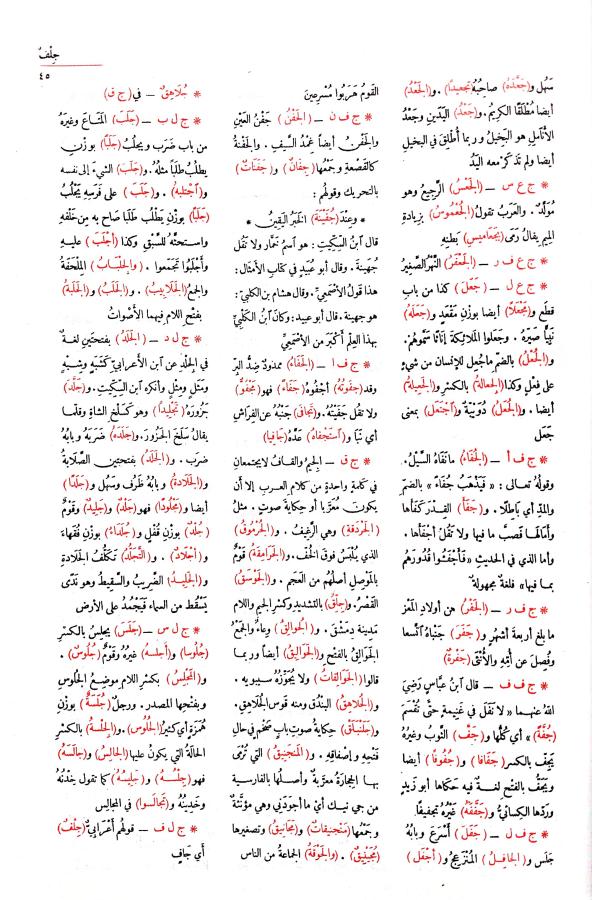 جِلْفٌ
٤٥
سَهُل و(جَعَّدَهُ) صاحبُهُ (تجعيدًا) . و(الجَعْدُ)
أيضا مُطْلَقًا الكريمُ . و(جَعْدُ) اليَدَيْنِ وجَعْدُ
الأناملِ هو البَخِيلُ وربما أُطْلِقَ في البخيلِ
أيضا ولم تُذكَرْ معه اليَدُ
* ج ع س – (الجَعْسُ) الرَّجِيعُ وهو
مُوَلَّدٌ . والعَرَبُ تقولُ (الجُعْمُوسُ) بزيادةِ
الميم يقالُ رَمَى (بجَعَامِيسِ) بَطنِهِ
* ج ع ف ر – (الجَعْفَرُ) النَّهْرُ الصَّغِيرُ
* ج ع ل – (جَعَلَ) كذا من بابِ
قطع و(مَجْعَلًا) أيضا بوزنِ مَقْعَدٍ و(جَعَلَهُ)
نَبِيًّا صَيَّرَهُ . وجَعَلوا الملائكةَ إناثًا سَمَّوْهُمْ .
و(الجُعْلُ) بالضم ماجُعِل للإنسان من شيءٍ
على فِعْلٍ وكذا (الجِعالةُ) بالكسرِ و(الجَعِيلةُ)
أيضا . و(الجُعَلُ) دُوَيْبَّةٌ و(اجْتَعَلَ) بمعنَى
جَعَل
* ج ف أ – (الجُفَاءُ) مانَفَاهُ السَّيْلُ .
وقولُهُ تعالى : « فَيَذْهَبُ جُفَاءً » بالضمِّ
والمدِّ أي بَاطِلًا . و(جَفَأَ) القِدْرَ كَفَأَها
وأمالَها فصَبَّ ما فيها ولا تَقُلْ أَجْفَأَها .
وأما الذي في الحديثِ « فأَجْفَئُوا قُدُورَهُم
بما فيها » فلغةٌ مجهولةٌ
* ج ف ر – (الجَفْرُ) من أولادِ المَعْزِ
ما بلغ أربعةَ أشهُرٍ و(جَفَرَ) جَنْبَاهُ اتَّسعا
وفُصِلَ عن أمِّهِ والأُنْثَى (جَفْرةٌ)
* ج ف ف – قال ابنُ عبَّاس رَضِيَ
اللهُ عنهما « لا نَفَلَ في غَنِيمةٍ حتَّى تُقْسَمَ
(جُفَّةً) » أي كُلُّها و(جَفَّ) الثَّوْبُ وغيرُهُ
يَجِفُّ بالكسرِ (جَفَافًا) و(جُفُوفًا) أيضا
ويَجَفُّ بالفتحِ لغةٌ فيه حكاها أبو زَيدٍ
وردَّها الكِسائيُّ و(جَفَّفَهُ) غيرُهُ تجفيفًا
* ج ف ل – (جَفَلَ) أَسْرَعَ وبابُهُ
جَلَس و(الجافِلُ) المُنزَعِجُ و(أَجْفَلَ)
القَومُ هَرَبُوا مُسْرِعِين
* ج ف ن – (الجَفْنُ) جَفْنُ العَيْنِ
والجَفْنُ أيضا غِمْدُ السَّيفِ . والجَفْنةُ
كالقَصْعةِ وجَمْعُها (جِفَانٌ) و(جَفَنَاتٌ)
بالتحريكِ وقولُهم :
* وعِنْدَ (جُفَيْنةَ) الخَبَرُ اليَقِينُ *
قال ابنُ السِّكِّيتِ : هو اسمُ خمَّارٍ ولا تَقُل
جُهَينةَ . وقال أبو عُبَيدٍ في كتابِ الأمثالِ :
هذا قولُ الأَصْمَعيِّ . وقال هشامُ بن الكلبيِّ :
هو جهينة . قال أبو عبيد : وكان ابنُ الكَلْبيِّ
بهذا العِلْمِ أكبَرَ من الأصمَعيِّ
* ج ف ا – (الجَفَاءُ) ممدودٌ ضِدُّ البِرِّ
وقد (جَفَوْتُهُ) أجْفُوهُ (جَفَاءً) فهو (مَجْفُوٌّ)
ولا تَقُل جَفَيْتُهُ . و(تَجافَى) جَنْبُهُ عن الفِراشِ
أي نَبَا و(اسْتَجْفاهُ) عَدَّهُ (جافِيا)
* ج ق – الجيمُ والقافُ لايجتمعانِ
في كلمةٍ واحدةٍ من كلام العربِ إلا أن
يكونَ مُعَرَّبًا أو حِكايةَ صوتٍ . مثلُ
(الجَرْدَقةِ) وهي الرَّغِيفُ . و(الجُرْمُوقُ)
الذي يُلْبَسُ فوقَ الخُفِّ . و(الجَرامِقةُ) قَوْمٌ
بالموصِلِ أصلُهُم من العَجَمِ . و(الجَوْسَقُ)
القَصْرُ . و(جِلِّقُ) بالتشديدِ وكسرِ الجيمِ واللامِ
مَدِينةُ دِمَشْقَ . و(الجُوالِقُ) وِعَاءٌ والجَمْعُ
الجَوَالِقُ بالفتح و(الجَوَالِيقُ) أيضًا وربما
قالوا (الجَوالِقاتُ) ولا يُجَوِّزُهُ سيبويه .
و(الجُلَاهِقُ) البُنْدُقُ ومنه قَوسُ الجُلَاهِقِ .
و(جَلَنْبَلَقْ) حِكايةُ صوتِ بابٍ ضَخْمٍ في حالِ
فَتْحِهِ وإصفاقِهِ . و(المَنْجَنِيقُ) التي تُرْمَى
بها الحِجارةُ معرَّبةٌ وأصلُها بالفارسية
من جي نيك أيْ ما أَجْوَدَنِي وهي مؤنَّثةٌ
وجَمْعُها (مَنْجَنِيقاتٌ) و(مَجَانِيقُ) وتصغيرها
(مُجَيْنِيقٌ) . و(الجَوْقةُ) الجماعةُ من الناس
* جُلَاهِقٌ – في (ج ق)
* ج ل ب – (جَلَبَ) المَتَاعَ وغيرَهُ
من باب ضَرَب ويجلُبُ (جَلَبًا) بوزنِ
يطلُبُ طَلَبًا مثلُهُ . و(جَلَبَ) الشيءَ إلى نفسه
و(اجتلبه) . و(جَلَبَ) على فَرَسِهِ يَجْلُبُ
(جَلَبًا) بوزنِ يَطْلُبُ طَلَبًا صاح به من خَلْفِهِ
واستحثَّهُ للسَّبْقِ وكذا (أجْلَبَ) عليه
وأَجْلَبُوا تَجَمَّعوا . و(الجِلبَابُ) المِلْحَفةُ
والجمعُ (الجَلابِيبُ) . و(الجَلَبُ) و(الجَلَبةُ)
بفتح اللامِ فيهما الأصْواتُ
* ج ل د – (الجَلَدُ) بفتحتَينِ لغةٌ
في الجِلدِ عن ابن الأعرابيِّ كشَبَهٍ وشِبْهٍ
ومَثَلٍ ومِثْلٍ وأنكره ابن السِّكِّيت . و(جَلَّدَ)
جَزُورَهُ (تَجْلِيدًا) وهو كسَلْخِ الشاةِ وقلَّما
يقالُ سَلَخَ الجَزُورَ . و(جَلَدَهُ) ضَرَبَهُ وبابُهُ
ضرب . و(الجَلَدُ) بفتحتين الصَّلَابةُ
و(الجَلَادةُ) وبابُهُ ظَرُف وسَهُل و(جَلَدًا)
أيضا و(مَجْلُودًا) فهو (جَلْدٌ) و(جَلِيدٌ) وقَوْمٌ
(جُلْدٌ) بوزنِ قُفْلٍ و(جُلَدَاءُ) بوزنِ فُقَهاءَ
و(أجلادٌ) . و(التَّجَلُّدُ) تَكَلُّفُ الجَلَادةِ
و(الجَلِيدُ) الضَّرِيبُ والسَّقِيطُ وهو نَدًى
يَسْقُط من السماءِ فيَجْمُدُ على الأرضِ
* ج ل س – (جَلَسَ) يجلِسُ بالكسرِ
(جُلُوسا) و(أجلسه) غيرُهُ وقَوْمٌ (جُلُوسٌ) .
و(المَجْلِسُ) بكسر اللامِ موضِعُ الجُلُوسِ
وبفتحِها المصدر . ورجلٌ (جُلَسَةٌ) بوزنِ
هُمَزَةٍ أي كثيرُ (الجُلُوسِ) . و(الجِلْسةُ) بالكسْرِ
الحالةُ التي يكون عليها (الجالِسُ) و(جالَسَهُ)
فهو (جِلْسُهُ) و(جَلِيسُهُ) كما تقول خِدْنُهُ
وخَدِينُهُ و(تجالَسُوا) في المجالِسِ
* ج ل ف – قولهم أَعْرابيٌّ (جِلْفٌ)
أي جَافٍ